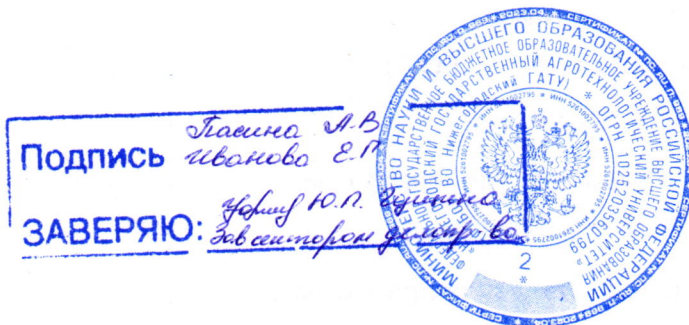 Подпись Пасина А.В
Иванова Е.П
ЗАВЕРЯЮ: Ю.П.
Зав сектором делопр-ва
МИНИСТЕРСТВО НАУКИ И ВЫСШЕГО ОБРАЗОВАНИЯ РОССИЙСКОЙ ФЕДЕРАЦИИ
ФЕДЕРАЛЬНОЕ ГОСУДАРСТВЕННОЕ БЮДЖЕТНОЕ ОБРАЗОВАТЕЛЬНОЕ УЧРЕЖДЕНИЕ ВЫСШЕГО ОБРАЗОВАНИЯ
НИЖЕГОРОДСКИЙ ГОСУДАРСТВЕННЫЙ АГРОТЕХНОЛОГИЧЕСКИЙ УНИВЕРСИТЕТ» * ОГРН 1025203560799
(ФГБОУ ВО Нижегородский ГАТУ)
* ИНН 5261002795 *
2
*